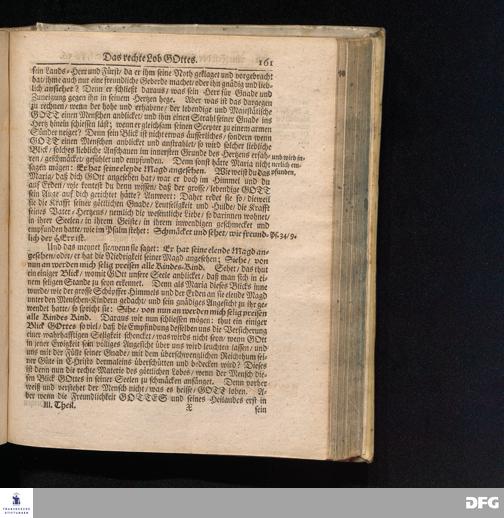 Das rechte Lob GOttes. 161
sein Lands-Herr und Fürst/ da er ihm seine Noth geklaget und vorgebracht
hat/ ihme auch nur eine freundliche Geberde machet/ oder ihn gnädig und lieb-
lich ansiehet? Denn er schließt daraus/ was sein Herr für Gnade und
Zuneigung gegen ihn in seinem Hertzen hege. Aber was ist das dargegen
zu rechnen/ wenn der hohe und erhabene/ der lebendige und Majestätische
GOTT einen Menschen anblicket/ und ihm einen Strahl seiner Gnade ins
Hertz hinein schiessen läst/ wenn er gleichsam seinen Scepter zu einem armen
Sünder neiget? Denn sein Blick ist nicht etwas äusserliches/ sondern wenn
GOTT einen Menschen anblicket und anstrahlet/ so wird solcher liebliche
Blick/ solches liebliche Anschauen im innersten Grunde des Hertzens erfah-
ren/ geschmäcket/ gefühlet und empfunden. Denn sonst hätte Maria nicht
sagen mögen: Er hat seine elende Magd angesehen. Wie weist du das
Maria/ daß dich GOtt angesehen hat/ war er doch im Himmel und du
auf Erden/ wie kontest du denn wissen/ daß der grosse/ lebendige GOTT
sein Auge auf dich gerichtet hätte? Antwort: Daher redet sie so/ dieweil
sie die Krafft seiner göttlichen Gnade/ Leutseligkeit und Hulde/ die Krafft
seines Vatter-Hertzens/ nemlich die wesentliche Liebe/ so darinnen wohnet/
in ihrer Seelen/ in ihrem Geiste/ in ihrem inwendigen geschmecket und
empfunden hatte/ wie im Psalm stehet: Schmäcket und sehet/ wie freund-
lich der HErr ist.
und wird in-
nerlich em-
pfunden.
Ps. 34/9.
Und das meynet sie/ wenn sie saget: Er hat seine elende Magd an-
gesehen/ oder/ er hat die Niedrigkeit seiner Magd angesehen; Siehe/ von
nun an werden mich selig preisen alle Kindes-Kind. Sehet/ das thut
ein einiger Blick/ womit GOtt unsere Seele anblicket/ daß man sich in ei-
nem seligen Stande zu seyn erkennet. Denn als Maria dieses Blicks inne
wurde/ wie der grosse Schöpffer Himmels und der Erden an sie elende Magd
unter den Menschen-Kindern gedacht/ und sein gnädiges Angesicht zu ihr ge-
wendet hatte/ so spricht sie: Sihe/ von nun an werden mich selig preisen
alle Kindes Kind. Daraus wir nun schliessen mögen: thut ein einiger
Blick GOttes so viel/ daß die Empfindung desselben uns die Versicherung
einer wahrhafftigen Seligkeit schencket/ was wirds nicht seyn/ wenn GOtt
in jener Ewigkeit sein völliges Angesicht über uns wird leuchten lassen/ und
uns mit der Fülle seiner Gnade/ mit dem überschwenglichen Reichthum sei-
ner Güte in Christo dermaleins überschütten und bedecken wird? Dieses
ist denn nun die rechte Materie des göttlichen Lobes/ wenn der Mensch die-
sen Blick GOttes in seiner Seelen zu schmäcken anfänget. Denn vorher
weiß und verstehet der Mensch nicht/ was es heisse/ GOTT loben. A-
ber wenn die Freundlichkeit GOTTES und seines Heilandes erst in
III. Theil. X sein
FRANCKESCHE
STIFTUNGEN
DFG